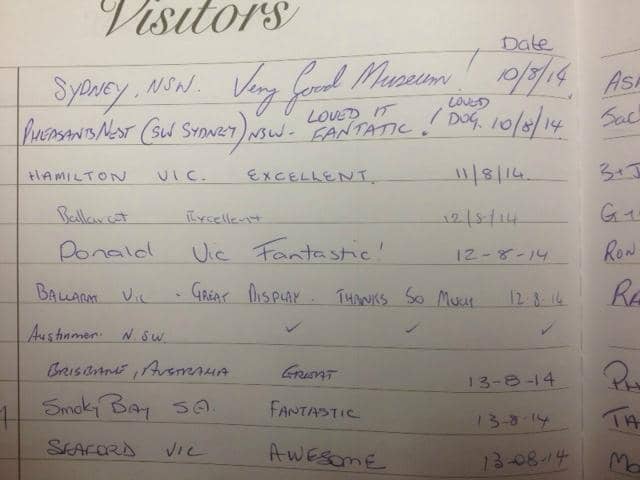 Visitors
Date
SYDNEY, NSW. Very Good Museum! 10/8/14
PHEASANTS NEST (SW SYDNEY) NSW - LOVED IT FANTATIC! LOVED DOG. 10/8/14
HAMILTON VIC. EXCELLENT. 11/8/14.
Ballarat Excellent 12/8/14
Donald Vic Fantastic! 12-8-14
BALLARAT VIC. GREAT DISPLAY. THANKS SO MUCH 12.8.14
Austinmer. NSW. ✓ ✓ ✓
BRISBANE, AUSTRALIA GREAT 13-8-14
Smoky BAY S.A. FANTASTIC 13-8-14
SEAFORD VIC AWESOME 13-08-14
RON